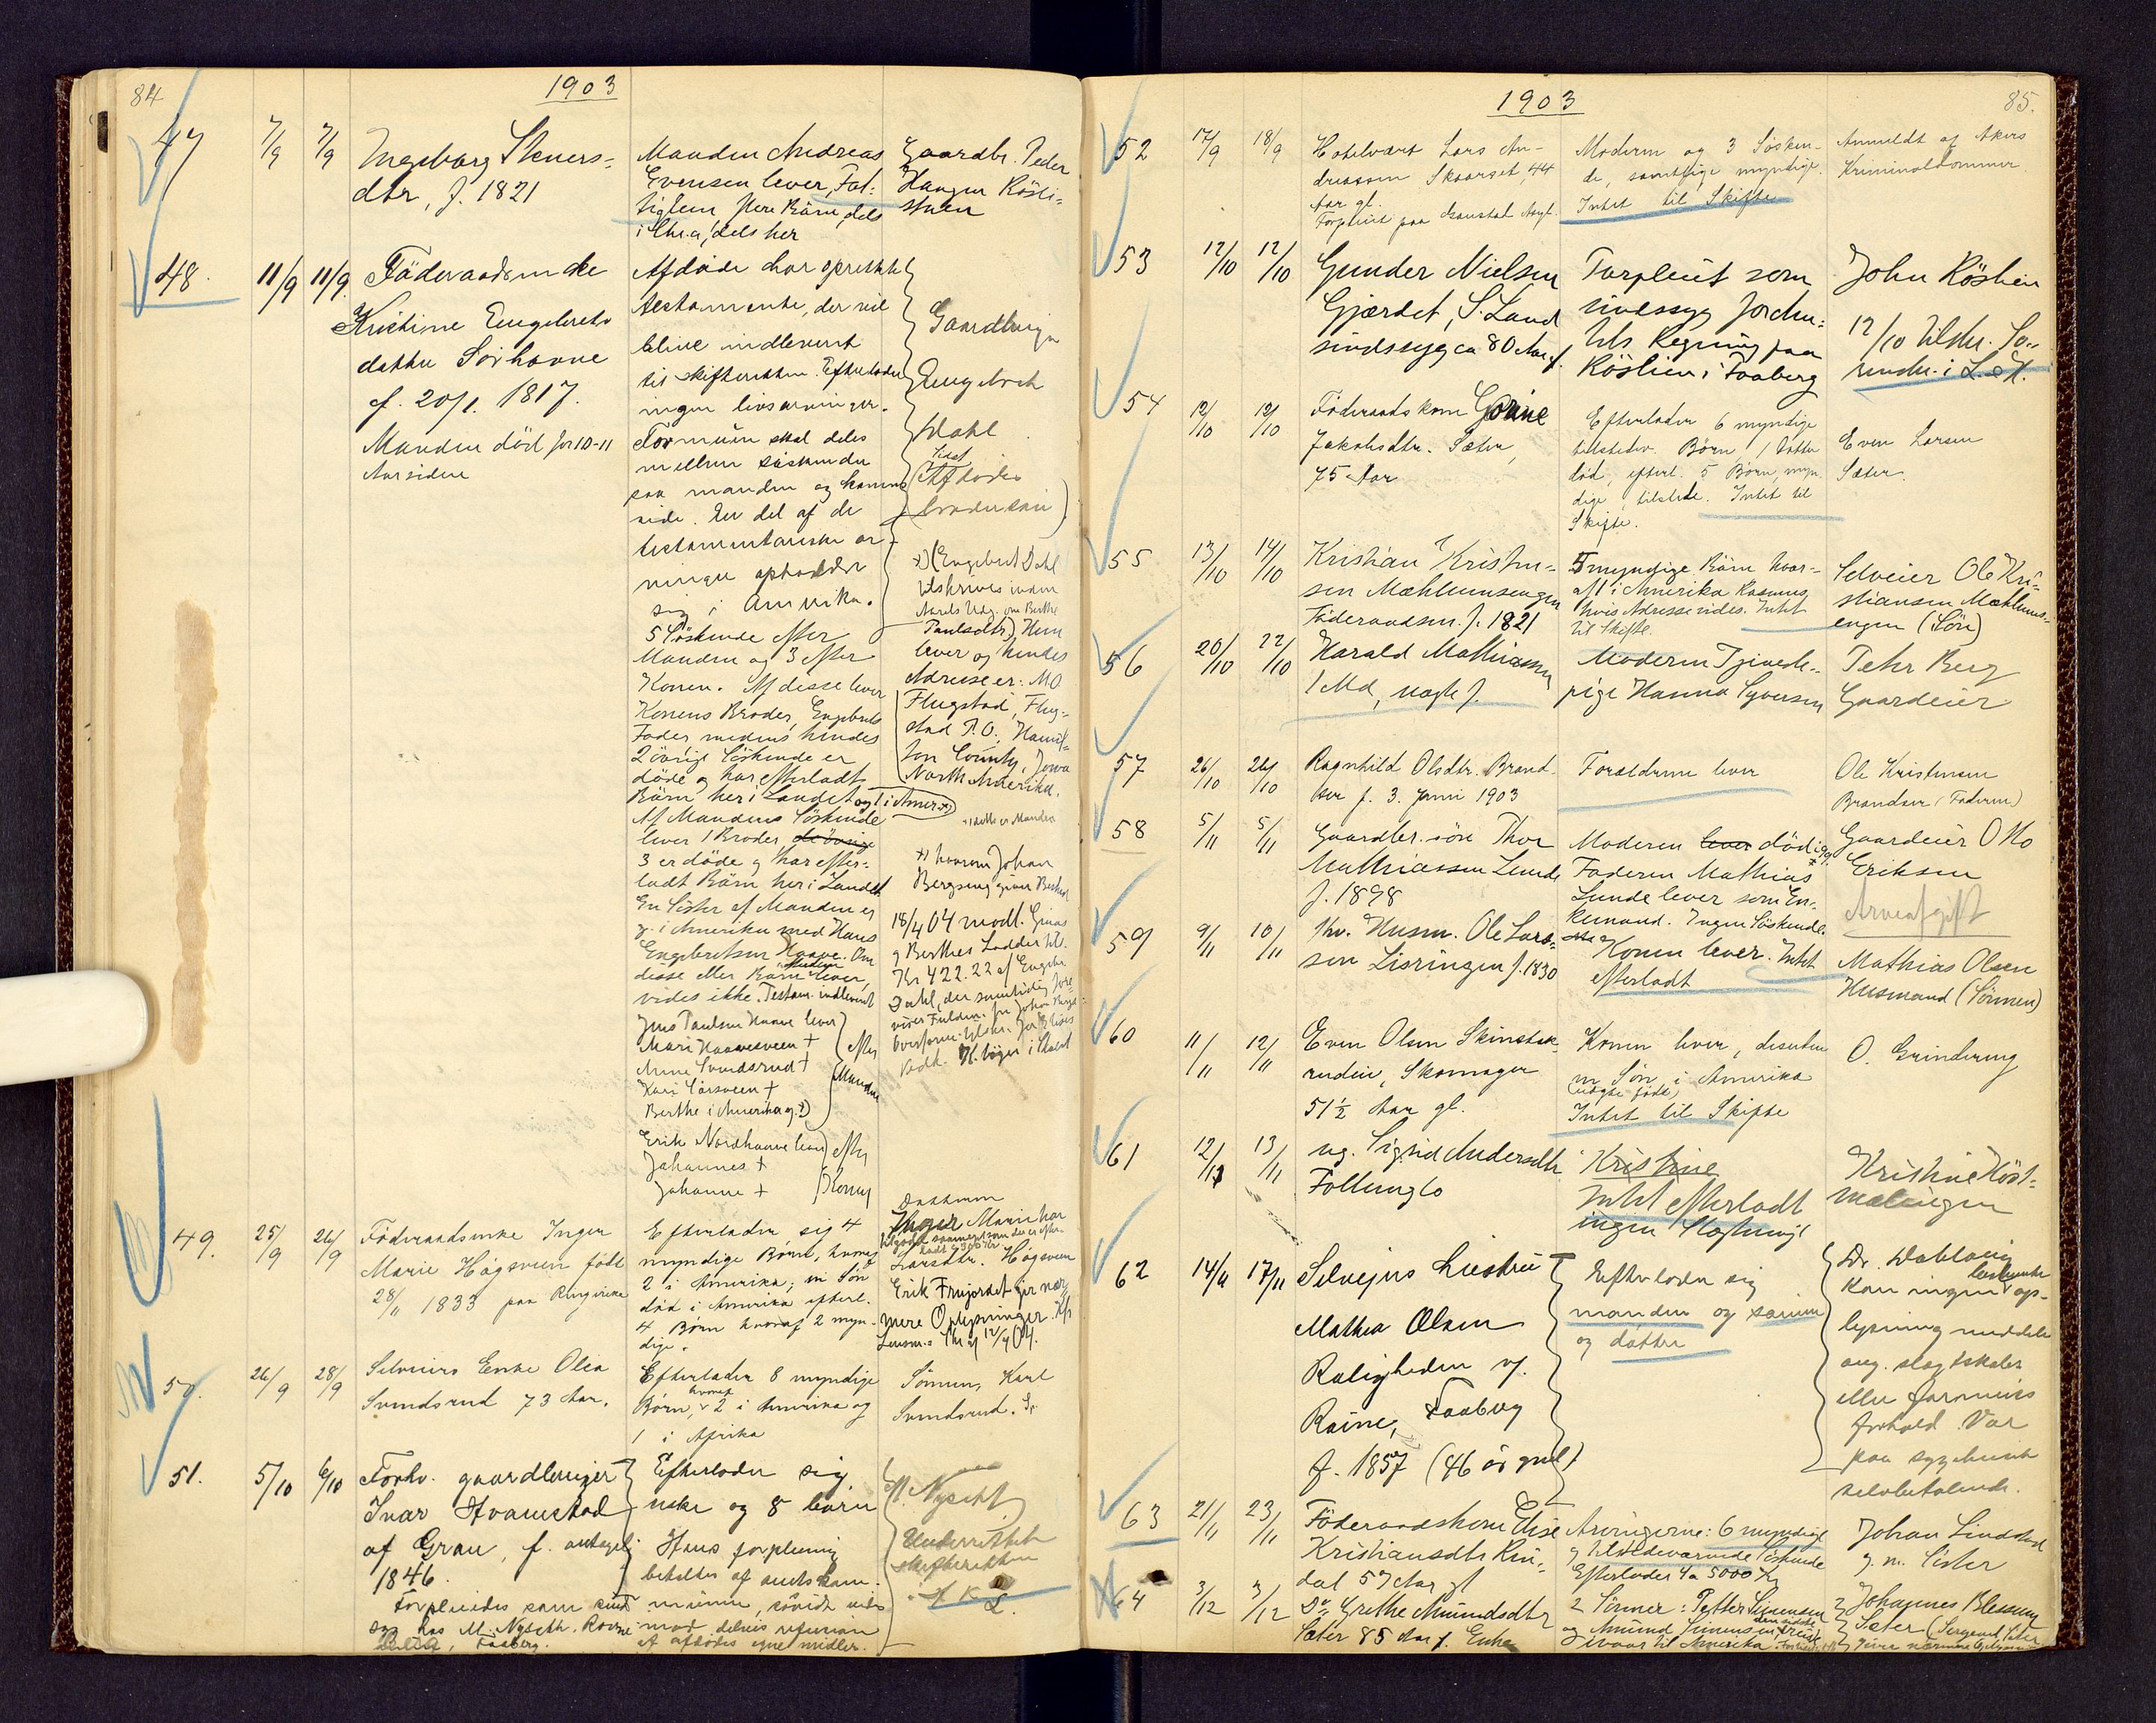 84
1903
47
7/9
7/9
Ingeborg Steners-
dtr, f. 1821
Manden Andreas
Evensen lever, Fat-
tiglem, flere Börn, dels
i Chr.a, dels her
Gaardbr. Peder
Haugen Rösli-
stuen
48.
11/9
11/9.
Föderaadsenke
Kristine Engebrets
datter Sörhaave
f. 20/1. 1817.
Manden död for 10-11
Aar siden
Afdöde har oprettet
testamente, der vil
blive indleveret
til skifteretten. Efterlader
ingen livsarvinger.
Formuen skal deles
mellem söskende
paa manden og konens
side. En del af de
testamentariske ar-
vinger opholder
sig i Amerika.
5 Söskende efter
Manden og 3 efter
Konen. Af disse lever
Konens Broder, Engebrets
Fader medens hendes
2 övrige Söskende er
döde og har efterladt
Börn her i Landet og 1 i Amer. x)
Af Mandens Söskende
lever 1 Broder de övrige
3 er döde og har efter-
ladt Börn her i Landet
En Söster af Manden er
g. i Amerika med Hans
Engebretsen Haave. Om
disse eller Börn lever,
vides ikke. Testam. indleveret
Jens Paulsen Haave lever
Mari Haavesveen +
Anne Svendsrud +
Kari Sörsveen +
Berthe i Amerika g. x)
efter
Manden
Erik Nordhaave lever
Johannes +
Johanne +
efter
Konen
Gaardbruger
Engebret
Dahl
(Afdödes
brodersön)
x) (Engebret Dahl
tilskrives inden
Aarets Udg. om Berthe
Paulsdtr), Hun
lever og hendes
Adresse er: M.O.
Flugstad, Flug-
stad P.O., Hamil-
ton County, Jowa
North Amerika.
x) hvorom Johan
Bergseng giver Besked
18/4 04 modt. Ginas
og Berthes Lodder til.
Kr 422.22 af Engebr.
Dahl, der samtidig fore-
viser Fuldm. fra Johan Bergs.
49.
25/9
26/9
Föderaadsenke Inger
Marie Hågsveen född
28/11 1833 paa Ringerike
Efterlader sig 4
myndige Börn, hvoraf
2 i Amerika; en Sön
död i Amerika efterl.
4 Börn hvoraf 2 myn-
dige.
Inger Marie har
Larsdtr. Hågsveen
Erik Frujordet gir nær-
mere Oplysninger. Kfr
Lensm.s Skr af 12/4 04.
50.
26/9
28/9
Selveiers Enke Olea
Svendsrud 73 Aar.
Efterlader 8 myndige
Börn, hvoraf 2 i Amerika og
1 i Afrika
Sönnen, Karl
Svendsrud.
51.
5/10
6/10
Forhv. gaardbruger
Ivar Hvamstad
af Gran, f. antagelig
1846.
Forpleiedes som sind
syg hos M. Nyseth, Roine
Faaberg.
Efterlader sig
enke og 8 börn
Hans forpleining
betaltes af amtskom-
munen, såvidt vides
mod delvis refusion
af afdödes egne midler.
M. Nyseth
Underrettet
skifteretten
85.
1903
52
17/9
18/9
Hotelvært Lars An-
dreassen Skaarset, 44
Aar gl.
Forpleiet paa Gaustad Asyl.
Moderen og 3 Sösken-
de, samtlige myndige.
Intet til Skifte
Anmeldt af Akers
Kriminaldommer
53
12/10
12/10
Gunder Nielsen
Gjærdet, S. Land
sindssyg ca 80 Aar g.
Forpleiet som
sindssyg for Am-
tets Regning paa
Röslien i Faaberg
John Röslien
12/10 tilskr. So-
renskr. i L. & H.
54
12/10
12/10
Föderaadskone Gorine
Jakobsdtr. Sæter,
75 Aar
Efterlader 6 myndige
tilstedev. Börn, 1 Datter
död, efterl. 5 Börn, myn-
dige, tilstede. Intet til
Skifte.
Even Larsen
Sæter.
55
13/10
14/10
Kristian Kristen-
sen Mæhlumsengen
Föderaadsm. f. 1821
5 myndige Börn hvor-
af 1 i Amerika Rasmus
hvis Adresse vides. Intet
til Skifte.
Selveier Ole Kri-
stiansen Mæhlums-
engen (Sön)
56
20/10
22/10
Harald Mathiassen
1 Md, uægte f.
Moderen Tjeneste-
pige Hanna Syversen
Peter Berg
Gaardeier
57
26/10
26/10
Ragnhild Olsdtr. Brand-
ser f. 3. Juni 1903
Forældrene lever
Ole Kristensen
Brandser (Faderen)
58
5/11
5/11
Gaardbr. sön Thor
Mathiassen Lunde
f. 1898
Moderen lever död igg.
Faderen Mathias
Lunde lever som En-
kemand. Ingen Söskende.
Gaardeier Otto
Eriksen
Arveafgift
59
9/11
10/11
fhv. Husm. Ole Lars-
sen Lisringen f. 1830
Konen lever. Intet
efterladt
Mathias Olsen
Husmand (Sönnen)
60
11/11
12/11
Even Olsen Skinstak-
rudeie, Skomager
51½ Aar gl.
Konen lever, desuden
en Sön i Amerika
(uægte född)
Intet til Skifte
O. Grindereng
61
12/11
13/11
ug. Sigrid Andersdtr
Follinglo
Kristine
Intet efterladt
ingen Slægtninge
Kristine Höst-
mælingen
62
14/11
17/11
Selvejers hustru
Mathea Olsen
Roligheden v/
Roine, Faaberg
f. 1857 (46 år gml)
Efterlader sig
manden og sönner
og datter
Dr. Dablaug
kan ingen bestemte op-
lysning meddele
ang. slægtskabs
eller formues
forhold. Var
paa sygehuset
selvbetalende.
63
21/11
23/11
Föderaadskone Elise
Kristiansdtr Rin-
dal 57 Aar gl
Arvingerne: 6 myndige
og tilstedeværende Söskende
Efterlader ca 5000 Kr
Johan Lindstad
g. m. Söster
64
3/12
3/12
Do Grethe Amundsdtr
Sæter 85 Aar g. Enke
2 Sönner: Petter Simensen
og Amund Simensen
til Amerika.
Johannes Blessum
Sæter (Sergeant Sæter
giver nærmere